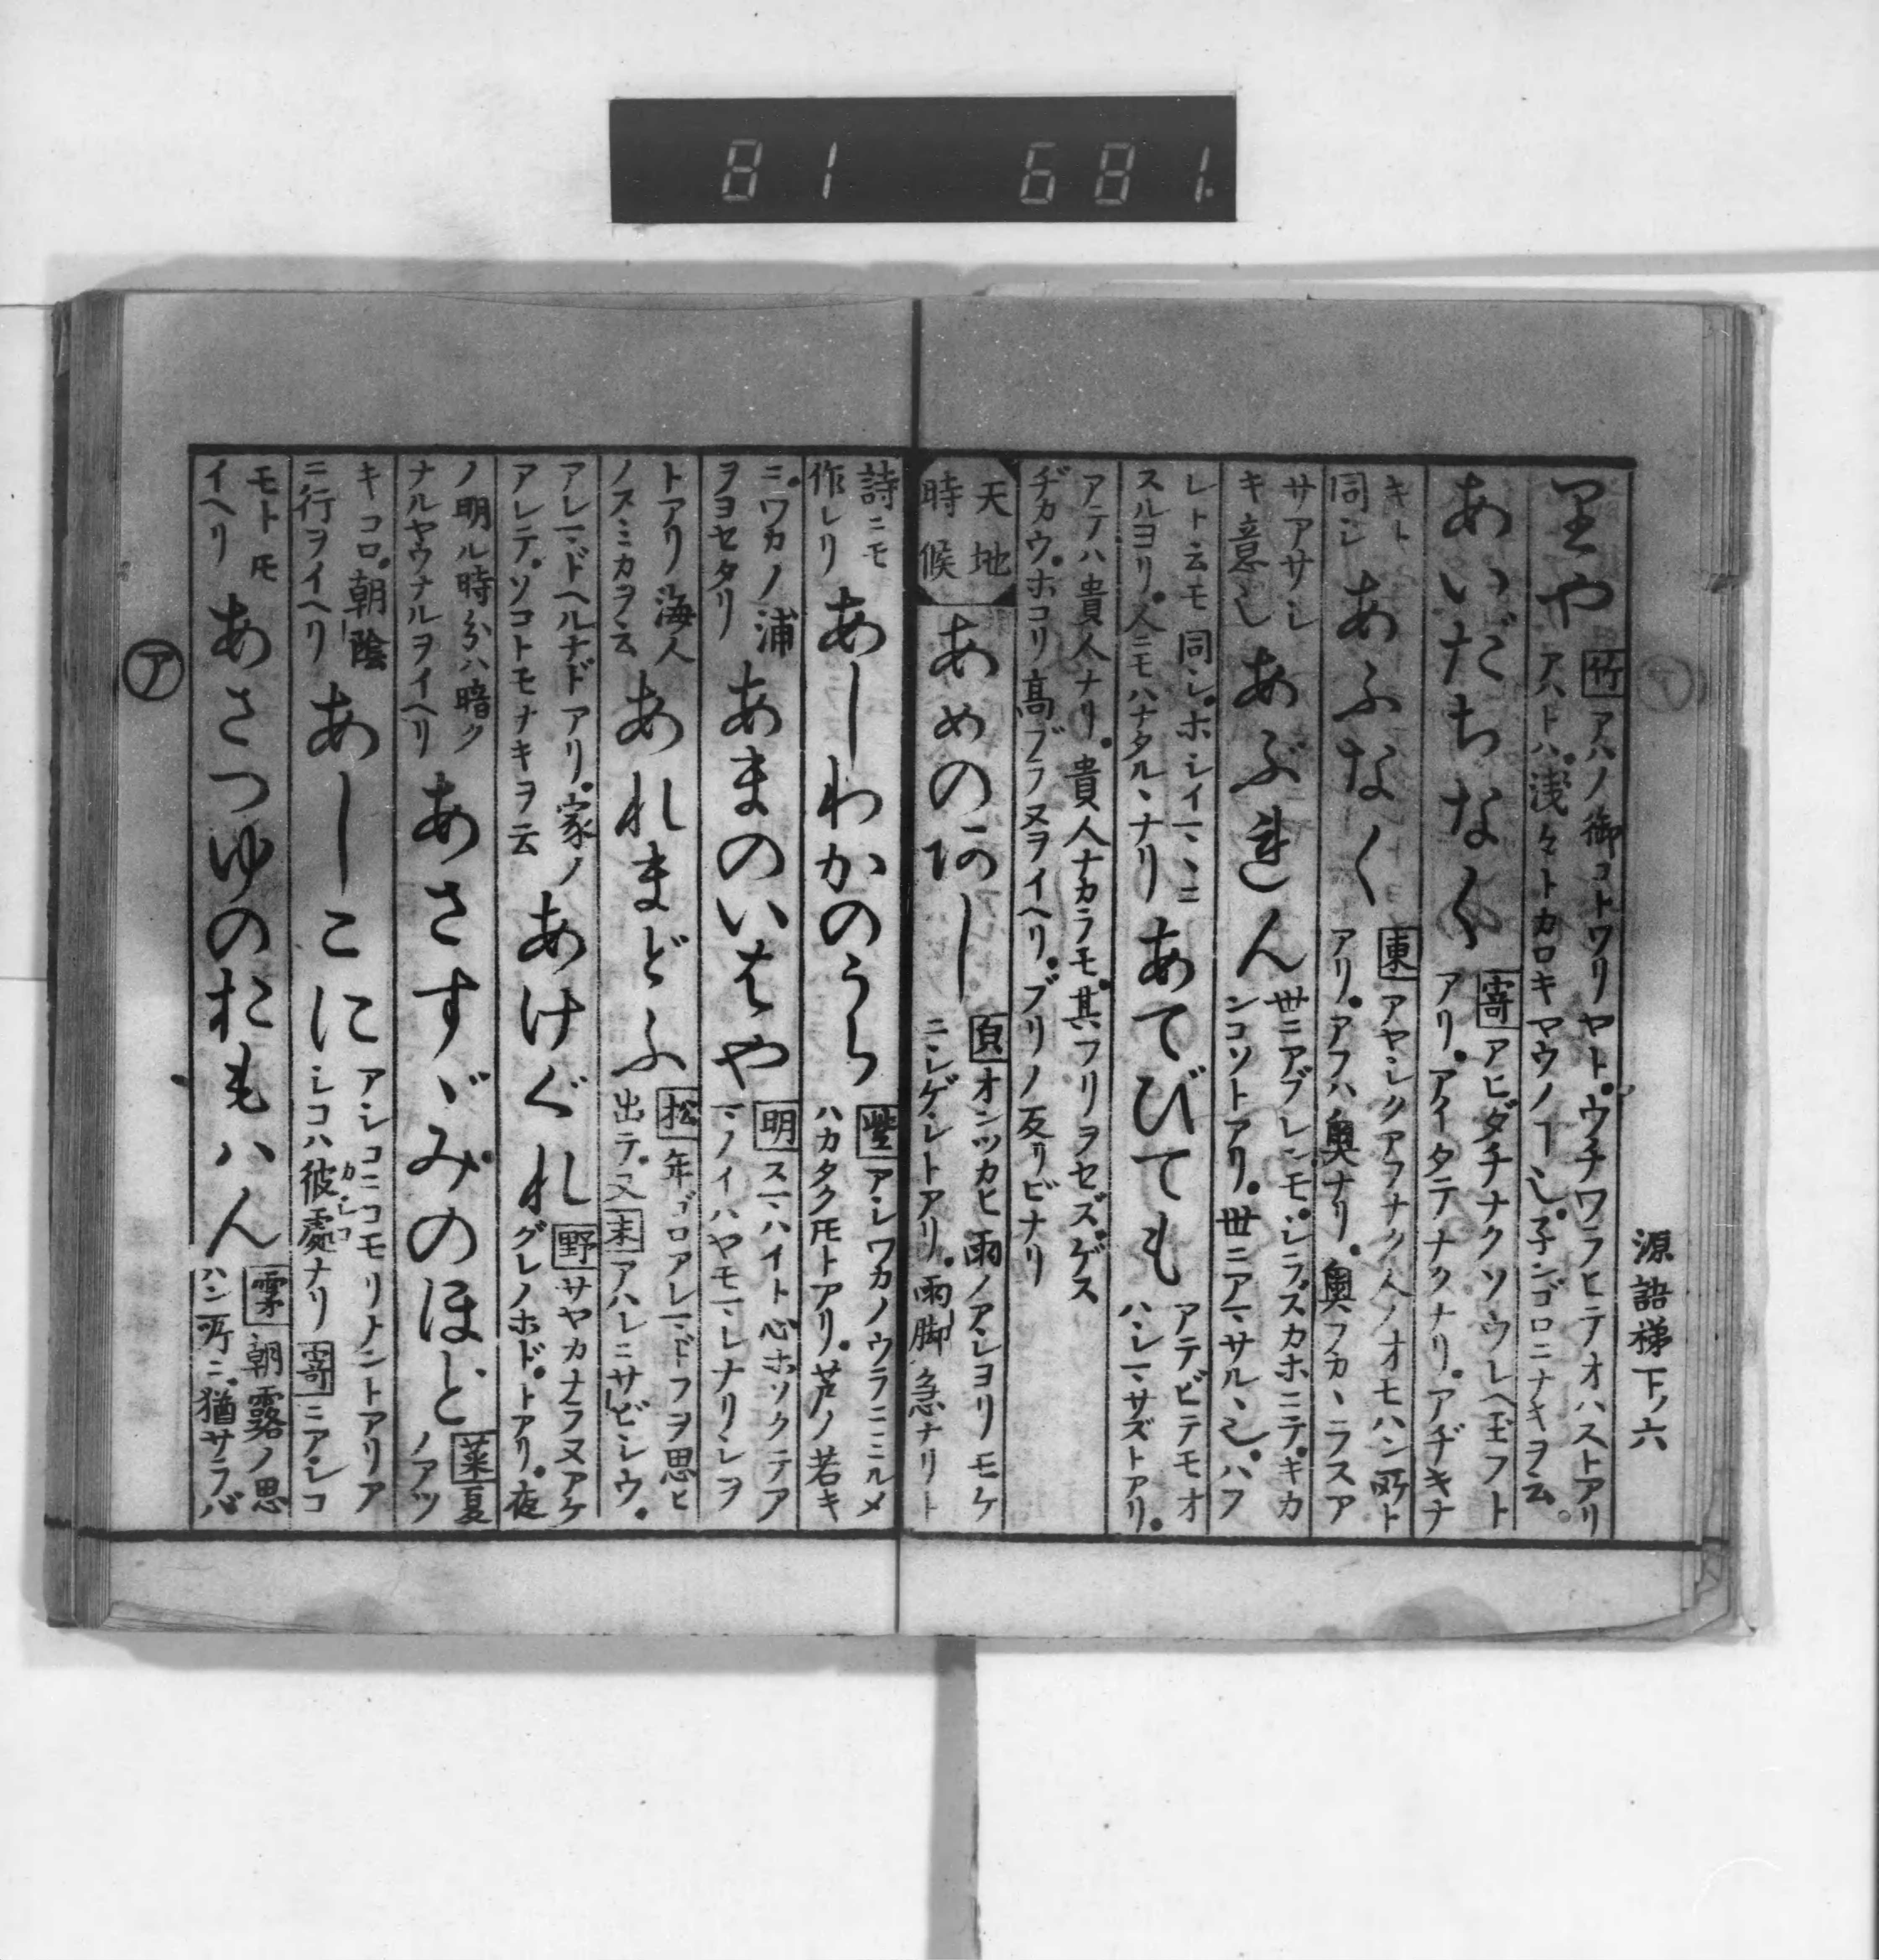 81 681.
源語梯下ノ六
りや 竹 アハノ御コトワリヤト。ウチワラヒテオハストアリ
アハトハ。浅々トカロキヤウノ
あいだちなく 寄 アヒダチナクソウレヘ玉フト
アリ。アイタテナクナリ。アヂキナ
キト
同シ
あふなく 東 アヤシクアフナク人ノオモハン所ト
アリ。アフハ奥ナリ。奥フカヽラスア
サアサシ
キ意シ
あぶれん 世ニアブレンモ。シラズカホニテ。キカ
ンコソトアリ。世ニアマサルヽ
レト云モ同シ。ホシイマヽニ
スルヨリ。人ニモハナタルヽナリ
あてびても アテビテモオ
ハシマサズトアリ。
アテハ貴人ナリ。貴人ナカラモ。其フリヲセズ。ゲス
ヂカウ。ホコリ高ブラヌヲイヘリ。ブリノ反リビナリ
天地
時候
あめのあし 須 オンツカヒ雨ノアシヨリモケ
ニシゲシトアリ。雨脚急ナリト
詩ニモ
作レリ
あしわかのうら 紫 アシワカノウラニミルメ
ハカタク圧トアリ。芦ノ若キ
ニ。ワカノ浦
ヲヨセタリ
あまのいはや 明 スマハイト心ホソクテア
マノイハヤモマレナリシヲ
トアリ海人
ノスミカヲ云
あれまどふ 松 年ゴロアレマドフヲ思ヒ
出テ。又 末 アハレニサビシウ。
アレマドヘルナドアリ。家ノ
アレテ。ソコトモナキヲ云
あけぐれ 野 サヤカナラヌアケ
グレノホド。トアリ。夜
ノ明ル時分ハ暗ク
ナルヤウナルヲイヘリ
あさすゞみのほど 菜 夏
ノアツ
キコロ。朝陰
ニ行ヲイヘリ
あしこに アシコニコモリナントアリア
シコハ彼處ナリ 寄 ニアシコ
カシコ
モト圧
イヘリ
あさつゆのおもハん 雲 朝露ノ思
ハン所ニ。猶サラバ
ア